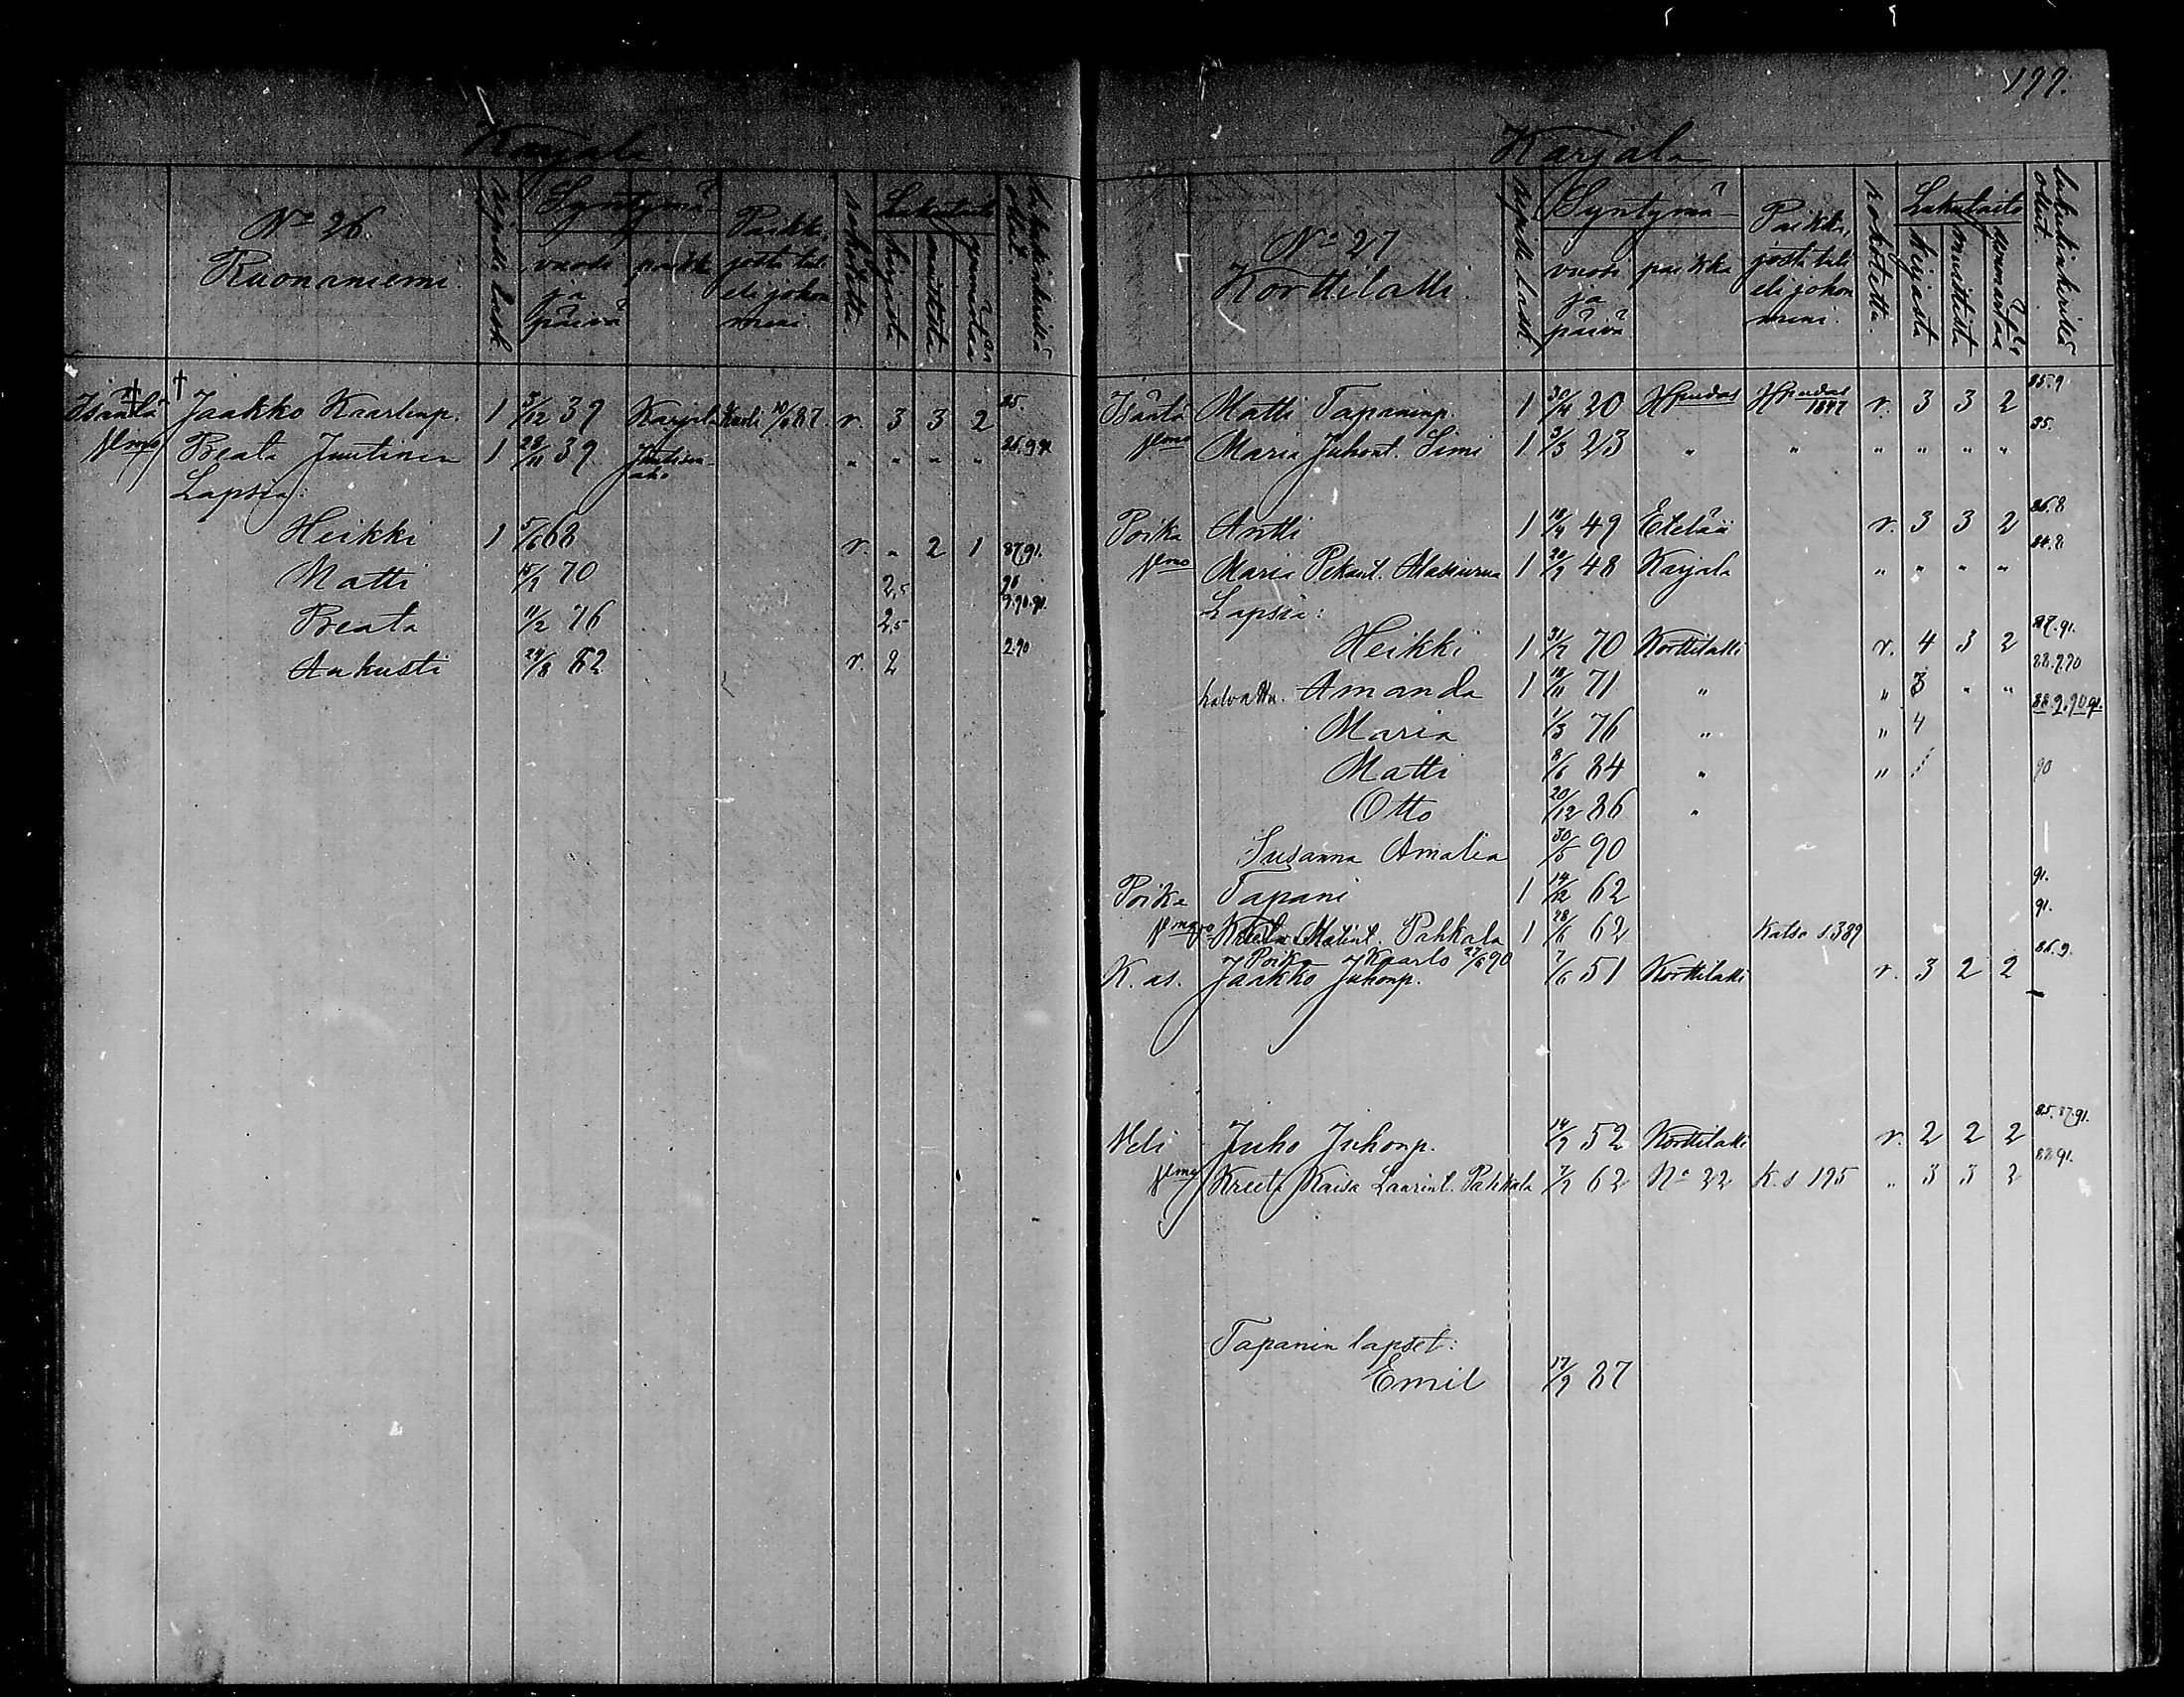 Karjala
No 26.
Ruonaniemi.
Syntymä-
vuosi ja päivä
paikka
Paikka, josta tuli eli johon meni.
rokotettu.
Lukutaito
kirjasta
muistista
ymmärtää
Isäntä † Jaakko Kaarlenp. 1 3/12 39 Karjala Kuoli 10/6 87. r. 3 3 2 85.
Vmo Beata Juutinen 1 28/11 39 " " " "
Lapsia:
Heikki 1 5/6 68 r. " 2 1 87.91.
Matti 15/7 70 2,5
Beata 11/2 76 2,5 9.90.91.
Aukusti 24/8 82 r. 2 2.90
197.
Karjala
No 27
Korttilatti.
Syntymä-
vuosi ja päivä
paikka
Paikka, josta tuli eli johon meni.
rokotettu.
Lukutaito
kirjasta
muistista
ymmärtää
lukukinkerillä ollut.
Isäntä Matti Tapaninp. 1 30/4 20 Hpudas Hpudas 1847 r. 3 3 2 85.9
Vmo Maria Juhont. Simi 1 3/3 23 " " " " " " 85.
Poika Antti 1 18/4 49 Etelää r. 3 3 2 86.8
Vmo Maria Pekant. 1 20/9 48 Karjala " " " " 84.8
Lapsia:
Heikki 1 31/7 70 Korttilatti r. 4 3 2 87.91.
halvattu. Amanda 1 18/11 71 " " 3 " " 88.9.90
Maria 1/3 76 " " 4 88.9.90.91.
Matti 8/6 84 " " 90
Otto 20/12 86 "
Susanna Amalia 30/5 90
Poika Tapani 1 14/12 62 91.
Vmo Kreeta Matint. Pahkala 1 28/6 62 Katso s.389 91.
Poika Kaarlo 27/6 90
K. as. Jaakko Juhonp. 7/6 51 Korttilatti r. 3 2 2 86.9.
Veli Juho Juhonp. 14/9 52 Korttilatti r. 2 2 2 85.87.91.
Vmo Kreeta Kaisa Laurint. Pahkala 7/7 62 No 22 K. s 195 " 3 3 2 88.91.
Tapanin lapset:
Emil 17/9 87